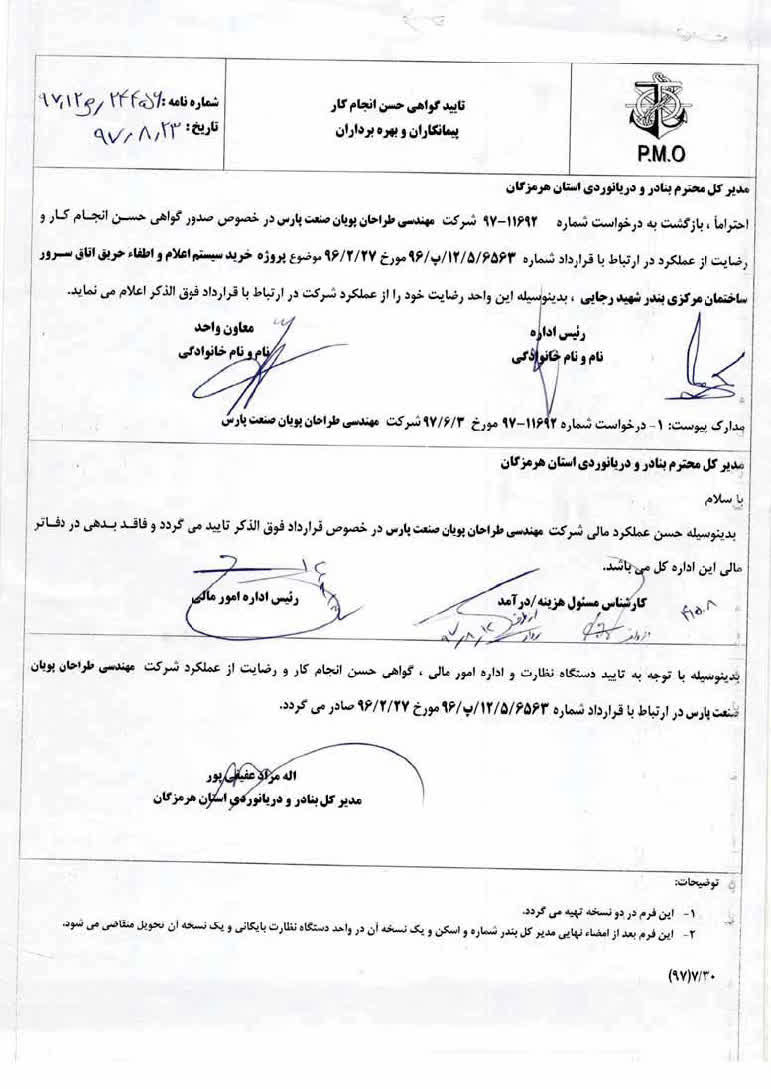 تایید گواهی حسن انجام کار
پیمانکاران و بهره برداران
شماره نامه :
تاریخ: ۹۷/۸/۲۳
P.M.O
مدیر کل محترم بنادر و دریانوردی استان هرمزگان
احتراماً ، بازگشت به درخواست شماره ۱۱۶۹۲-۹۷ شرکت مهندسی طراحان پویان صنعت پارس در خصوص صدور گواهی حسن انجام کار و
رضایت از عملکرد در ارتباط با قرارداد شماره ۹۶/پ/۱۲/۵/۶۵۶۳ مورخ ۹۶/۲/۲۷ موضوع پروژه خرید سیستم اعلام و اطفاء حریق اتاق سرور
ساختمان مرکزی بندر شهید رجایی ، بدینوسیله این واحد رضایت خود را از عملکرد شرکت در ارتباط با قرارداد فوق الذکر اعلام می نماید.
رئیس اداره
نام و نام خانوادگی
معاون واحد
نام و نام خانوادگی
مدارک پیوست: ۱- درخواست شماره ۱۱۶۹۲-۹۷ مورخ ۹۷/۶/۳ شرکت مهندسی طراحان پویان صنعت پارس
مدیر کل محترم بنادر و دریانوردی استان هرمزگان
با سلام
بدینوسیله حسن عملکرد مالی شرکت مهندسی طراحان پویان صنعت پارس در خصوص قرارداد فوق الذکر تایید می گردد و فاقد بدهی در دفاتر
مالی این اداره کل می باشد.
کارشناس مسئول هزینه/درآمد
رئیس اداره امور مالی
بدینوسیله با توجه به تایید دستگاه نظارت و اداره امور مالی ، گواهی حسن انجام کار و رضایت از عملکرد شرکت مهندسی طراحان پویان
صنعت پارس در ارتباط با قرارداد شماره ۹۶/پ/۱۲/۵/۶۵۶۳ مورخ ۹۶/۲/۲۷ صادر می گردد.
اله مراد عفیفی پور
مدیر کل بنادر و دریانوردی استان هرمزگان
توضیحات:
۱- این فرم در دو نسخه تهیه می گردد.
۲- این فرم بعد از امضاء نهایی مدیر کل بندر شماره و اسکن و یک نسخه آن در واحد دستگاه نظارت بایگانی و یک نسخه آن تحویل متقاضی می شود.
۷/۳۰(۹۷)